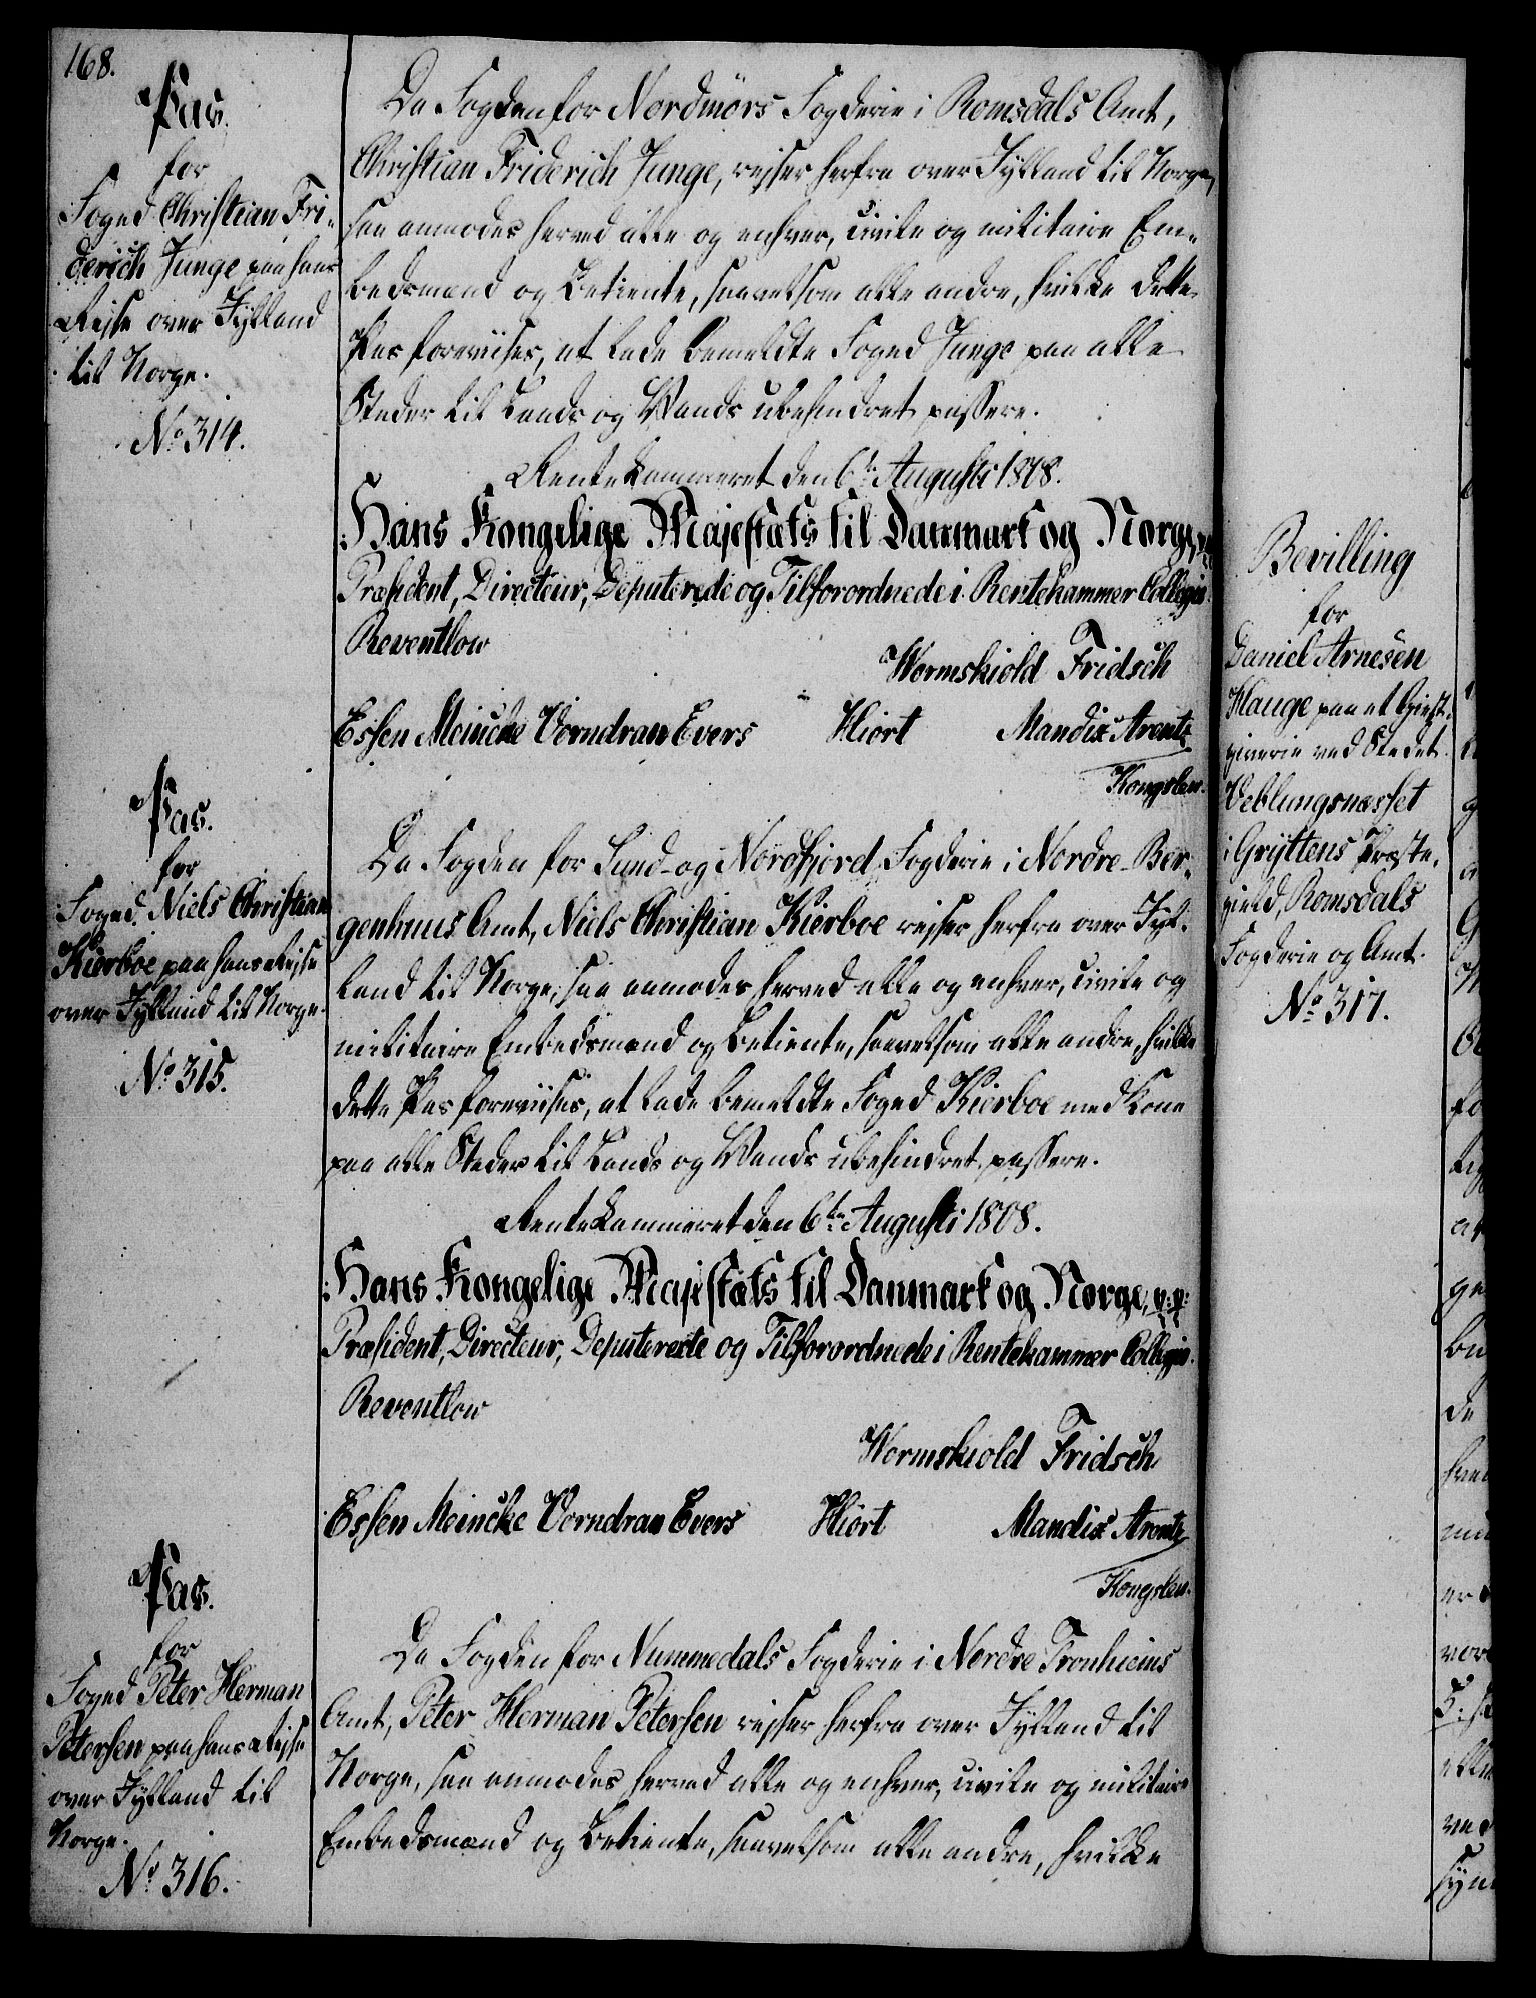 168.
Pas.
for
Foged Christian Fri-
derich Junge paa hans
Rejse over Jylland
til Norge.
No. 314.
Da Fogden for Nordmørs Fogderie i Romsdals Amt,
Christian Friderich Junge, rejser herfra over Jylland til Norge,
saa anmodes herved alle og enhver, civile og militaire Em-
bedsmænd og Betiente, saavelsom alle andre, hvilke dette
Pas foreviises, at lade bemeldte Foged Junge paa alle
Steder til Lands og Vands ubehindret passere.
Rentekammeret den 6te Augusti 1808.
Hans Kongelige Majestæts til Danmark og Norge,
Præsident, Directeur, Deputerede og Tilforordnede i Rentekammer Collegio.
Reventlow
Wormskiold Fridsch
Essen Meincke Vorndran Evers Hiort Mandix Arentz
Kongslew.
Pas.
for
Foged Niels Christian
Kierboe paa hans Rejse
over Jylland til Norge.
No. 315.
Da Fogden for Sund- og Nordfjord Fogderie i Nordre-Ber-
genhuus Amt, Niels Christian Kierboe rejser herfra over Jyl-
land til Norge, saa anmodes herved alle og enhver, civile og
militaire Embedsmænd og Betiente, saavelsom alle andre, hvilke
dette Pas foreviises, at lade bemeldte Foged Kierboe med Kone
paa alle Steder til Lands og Vands ubehindret passere.
Rentekammeret den 6te Augusti 1808.
Hans Kongelige Majestæts til Danmark og Norge, p: p:
Præsident, Directeur, Deputerede og Tilforordnede i Rentekammer Collegio.
Reventlow
Wormskiold Fridsch
Essen Meincke Vorndran Evers Hiort Mandix Arentz
Kongslew.
Pas.
for
Foged Peter Herman
Petersen paa hans Rejse
over Jylland til
Norge.
No. 316.
Da Fogden for Nummedals Fogderie i Nordre Tronhiems
Amt, Peter Herman Petersen rejser herfra over Jylland til
Norge, saa anmodes herved alle og enhver, civile og militaire
Embedsmænd og Betiente, saavelsom alle andre, hvilke
Bevilling
for
Daniel Arnesen
Hauge paa et Giest-
giverie ved Stedet
Veblungsnæsset
i Gryttens Præste-
gield, Romsdals
Fogderie og Amt.
No. 317.